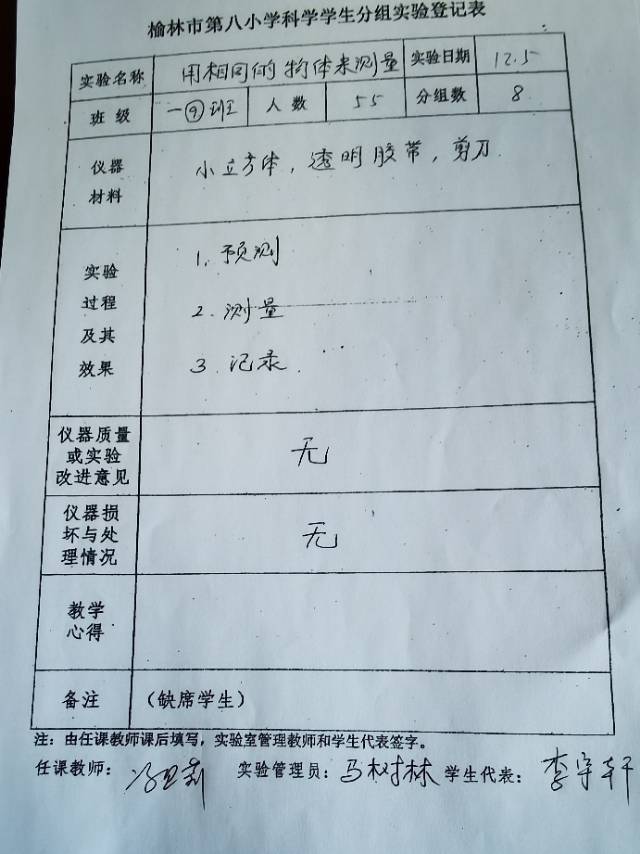 榆林市第八小学科学学生分组实验登记表
实验名称 用相同的物体来测量 实验日期 12.5
班 级 一⑨班 人 数 55 分组数 8
仪器
材料
小立方体，透明胶带，剪刀.
实验
过程
及其
效果
1. 预测
2. 测量
3. 记录
仪器质量
或实验
改进意见
无
仪器损
坏与处
理情况
无
教学
心得
备注 （缺席学生）
注：由任课教师课后填写，实验室管理教师和学生代表签字。
任课教师： 实验管理员：马树林 学生代表：李宇轩